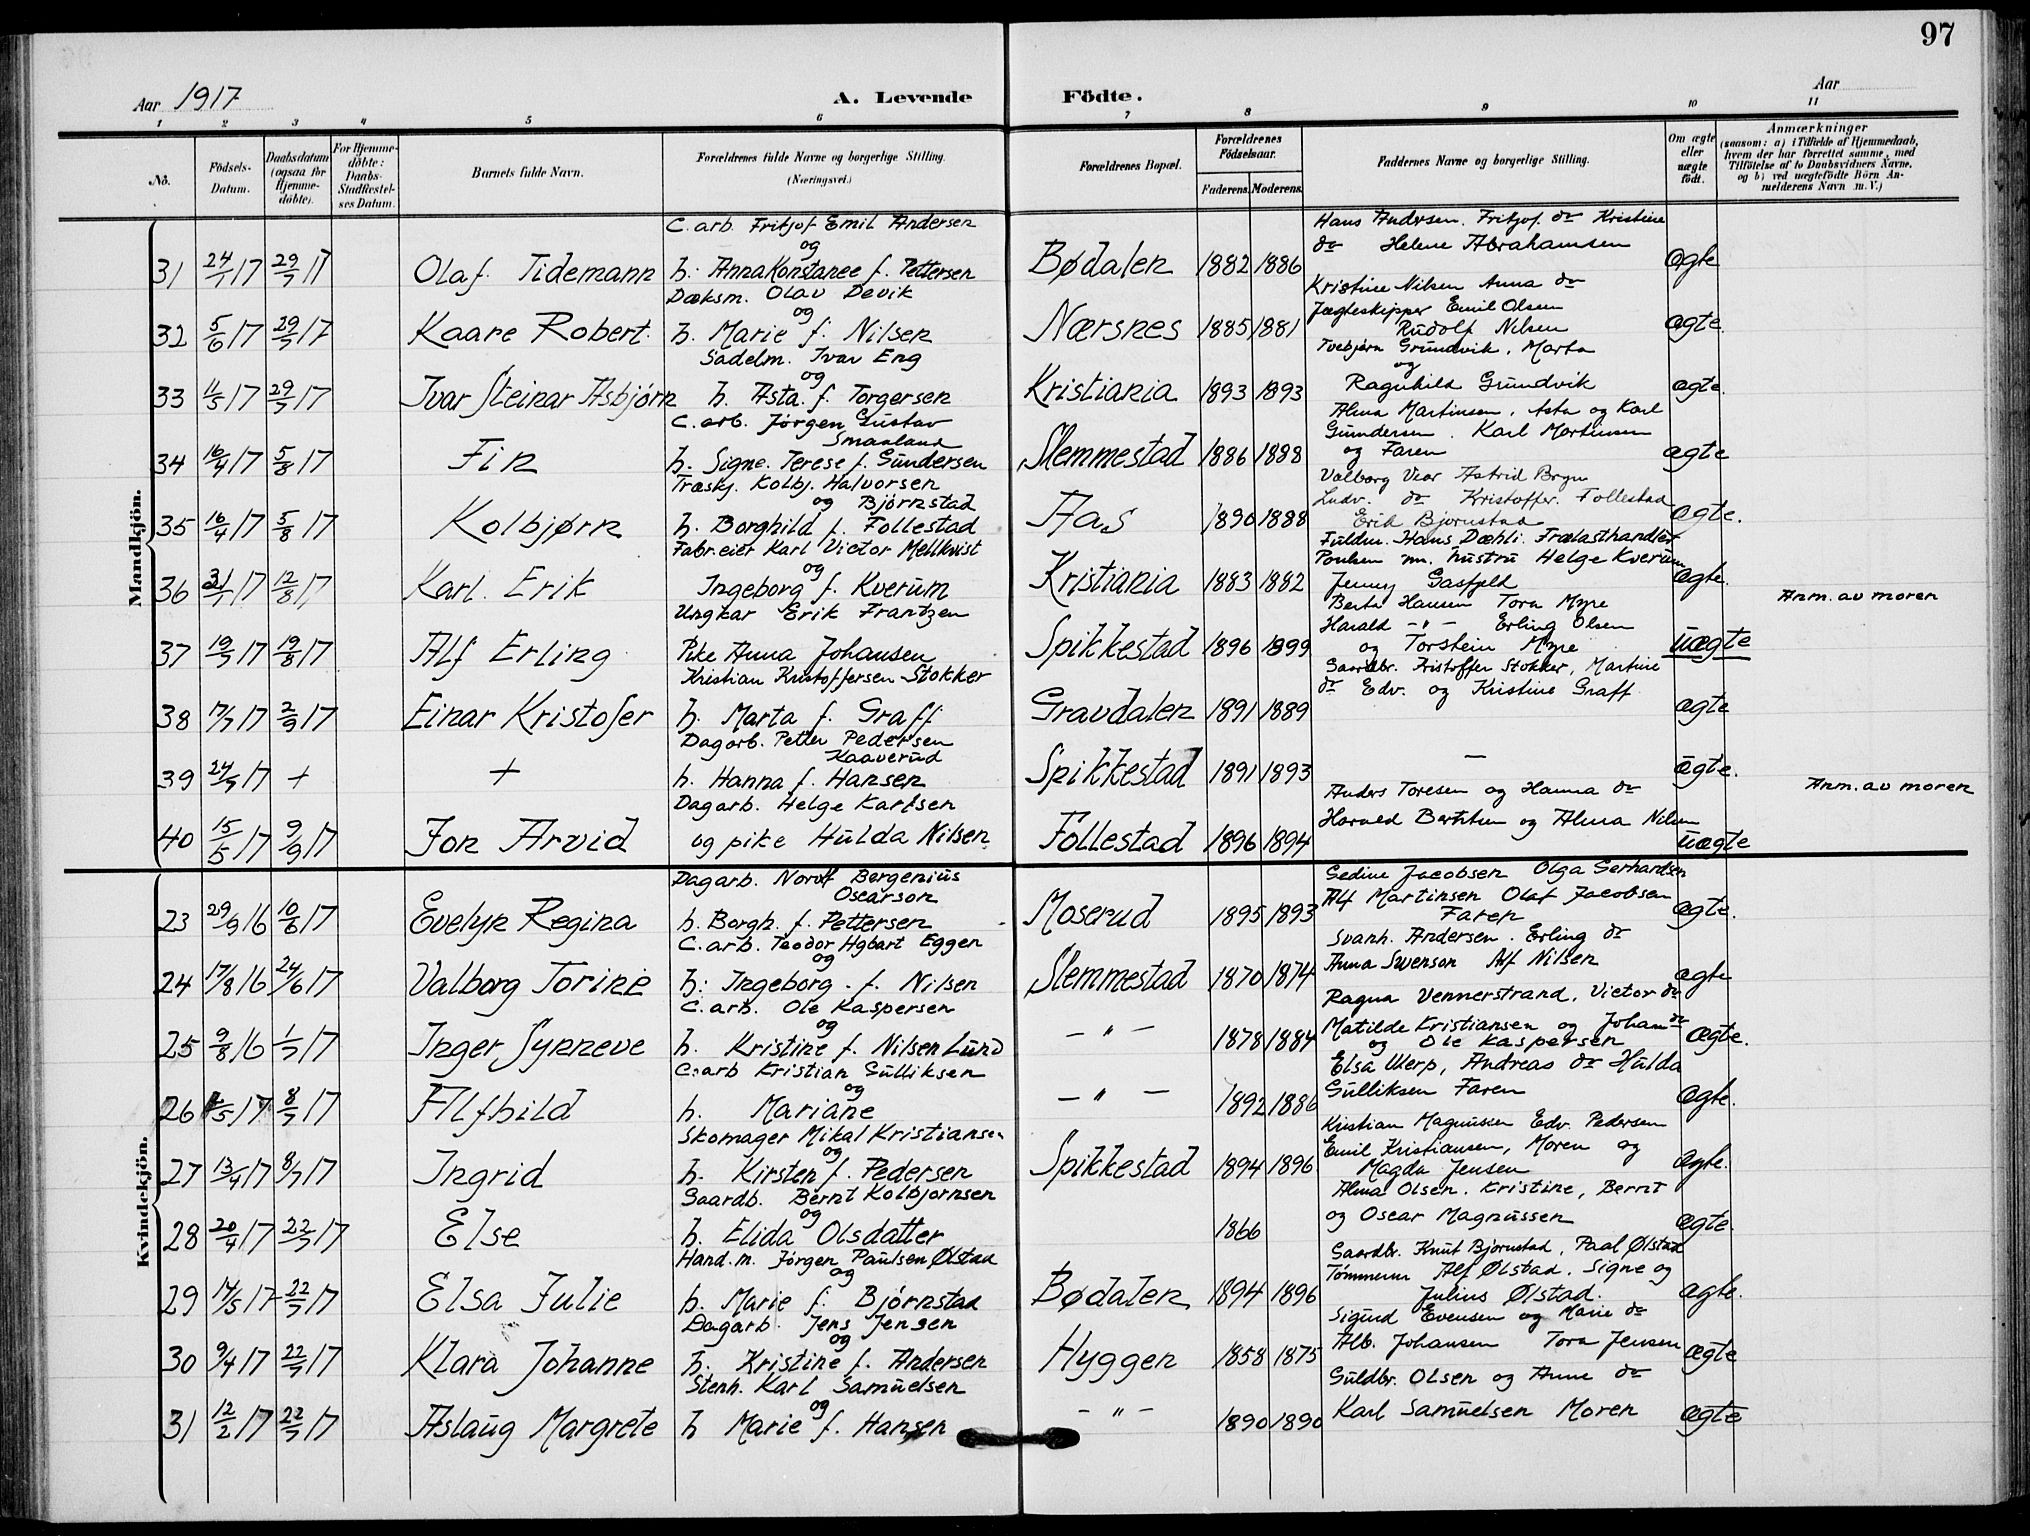 97
Aar 1917
A. Levende Födte.
Aar
1 2 3 4 5 6 7 8 9 10 11
No.
Födsels-Datum.
Daabsdatum (ogsaa for Hjemme-döbte).
For Hjemme-döbte: Daabs-Stadfæstel-ses Datum.
Barnets fulde Navn.
Forældrenes fulde Navne og borgerlige Stilling. (Næringsvei.)
Forældrenes Bopæl.
Forældrenes Födselsaar.
Faderens. Moderens.
Faddernes Navne og borgerlige Stilling.
Om ægte eller uægte födt.
Anmærkninger
(saasom: a) i Tilfælde af Hjemmedaab, hvem der har forrettet samme, med Tilföielse af to Daabsvidners Navne, og b) ved uægtefödte Börn An-melderens Navn m. V.)
Mandkjön.
C. arb. Fritjof Emil Andersen
og
31 24/7 17 29/7 17 Olaf Tidemann h. Anna Konstance f. Pettersen Bødalen 1882 1886
Hans Andersen. Fritjof do Kristine
do Helene Abrahamsen
ægte
Dæksm. Olav Devik
og
32 5/6 17 29/7 17 Kaare Robert. h. Marie f. Nilsen Nærsnes 1885 1881
Kristine Nilsen Anna do
Jægteskipper Emil Olsen
Rudolf Nilsen
ægte
Sadelm. Ivar Eng
og
33 11/5 17 29/7 17 Ivar Steinar Asbjørn h. Asta f. Torgersen Kristiania 1893 1893
Torbjørn Grundvik, Marta
og
Ragnhild Grundvik
ægte.
C. arb. Jørgen Gustav
Smaaland
34 16/4 17 5/8 17 Fin h. Signe Terese f. Gundersen Slemmestad 1886 1888
Alma Martinsen, Asta og Karl
Gundersen. Karl Martinsen
og Faren
ægte
Træskj. Kolbj. Halvorsen
og Bjørnstad
35 16/4 17 5/8 17 Kolbjørn h. Borghild f. Follestad Aas 1890 1888
Valborg Vear Astrid Bryn
Ludv. do Kristoffer Follestad
Erik Bjørnstad
ægte.
Fabr.eier Karl Victor Mellkvist
og
36 31/1 17 12/8 17 Karl Erik Ingeborg f. Kverum Kristiania 1883 1882
Fuldm. Hans Dæhli. Trælasthandler
Poulsen m. hustru Helge Kverum
Jenny Gasfjeld
ægte.
Ungkar Erik Frantzen
37 19/7 17 19/8 17 Alf Erling Pike Anna Johansen Spikkestad 1896 1899
Berta Hansen Tora Myre
Harald — " — Erling Olsen
og Torstein Myre
uægte
Anm. av moren
Kristian Kristoffersen Stokker
38 17/7 17 2/9 17 Einar Kristofer h. Marta f. Graff Gravdalen 1891 1889
Gaardbr. Kristoffer Stokker, Martine
do Edv. og Kristine Graff
ægte
Dagarb. Petter Pedersen
Kaaverud
39 24/9 17 + + h. Hanna f. Hansen Spikkestad 1891 1893 — ægte.
Dagarb. Helge Karlsen
40 15/5 17 9/9 17 Jon Arvid og pike Hulda Nilsen Follestad 1896 1894
Anders Toresen og Hanna do
Harald Bertelsen og Alma Nilsen
uægte
Anm. av moren
Kvindekjön.
Dagarb. Nordf Bergenius
Oscarson
23 29/9 16 10/6 17 Evelyn Regina h. Borgh. f. Pettersen Moserud 1895 1893
Gedine Jacobsen Olga Gerhardsen
Alf Martinsen Olaf Jacobsen
Faren
ægte.
C. arb. Teodor Hgbart Eggen
og
24 17/8 16 24/6 17 Valborg Torine h. Ingeborg f. Nilsen Slemmestad 1870 1874
Svanh. Andersen. Erling do
Anna Swenson Alf Nilsen
ægte
C. arb. Ole Kaspersen
og
25 9/8 16 1/7 17 Inger Synneve h. Kristine f. Nilsen Lund — " — 1878 1884
Ragna Vennerstrand, Victor do
Matilde Kristiansen og Johan do
og Ole Kaspersen
ægte.
C. arb Kristian Gulliksen
og
26 /5 17 8/7 17 Alfhild h. Mariane — " — 1892 1886
Elsa Werp, Andreas do Hulda
Gulliksen Faren
ægte.
Skomager Mikal Kristiansen
og
27 13/4 17 8/7 17 Ingrid h. Kirsten f. Pedersen Spikkestad 1894 1896
Kristian Magnussen Edv. Pedersen
Emil Kristiansen, Moren og
Magda Jensen
ægte.
Gaardb. Bernt Kolbjørnsen
og
28 20/4 17 22/7 17 Else h. Elida Olsdatter 1866
Alma Olsen. Kristine, Bernt
og Oscar Magnussen
ægte.
Hand.m. Jørgen Paulsen Ølstad
og
29 14/5 17 22/7 17 Elsa Julie h. Marie f. Bjørnstad Bødalen 1894 1896
Gaardbr. Knut Bjørnstad, Paal Ølstad
Tømmerm Alf Ølstad. Signe og
Julius Ølstad.
ægte.
Dagarb. Jens Jensen
og
30 9/4 17 22/7 17 Klara Johanne h. Kristine f. Andersen Hyggen 1858 1875
Sigurd Evensen og Marie do
Alb. Johansen Tora Jensen
ægte
Stenh. Karl Samuelsen
og
31 12/2 17 22/7 17 Aslaug Margrete h Marie f. Hansen — " — 1890 1890
Guldbr. Olsen og Anne do
Karl Samuelsen Moren
ægte